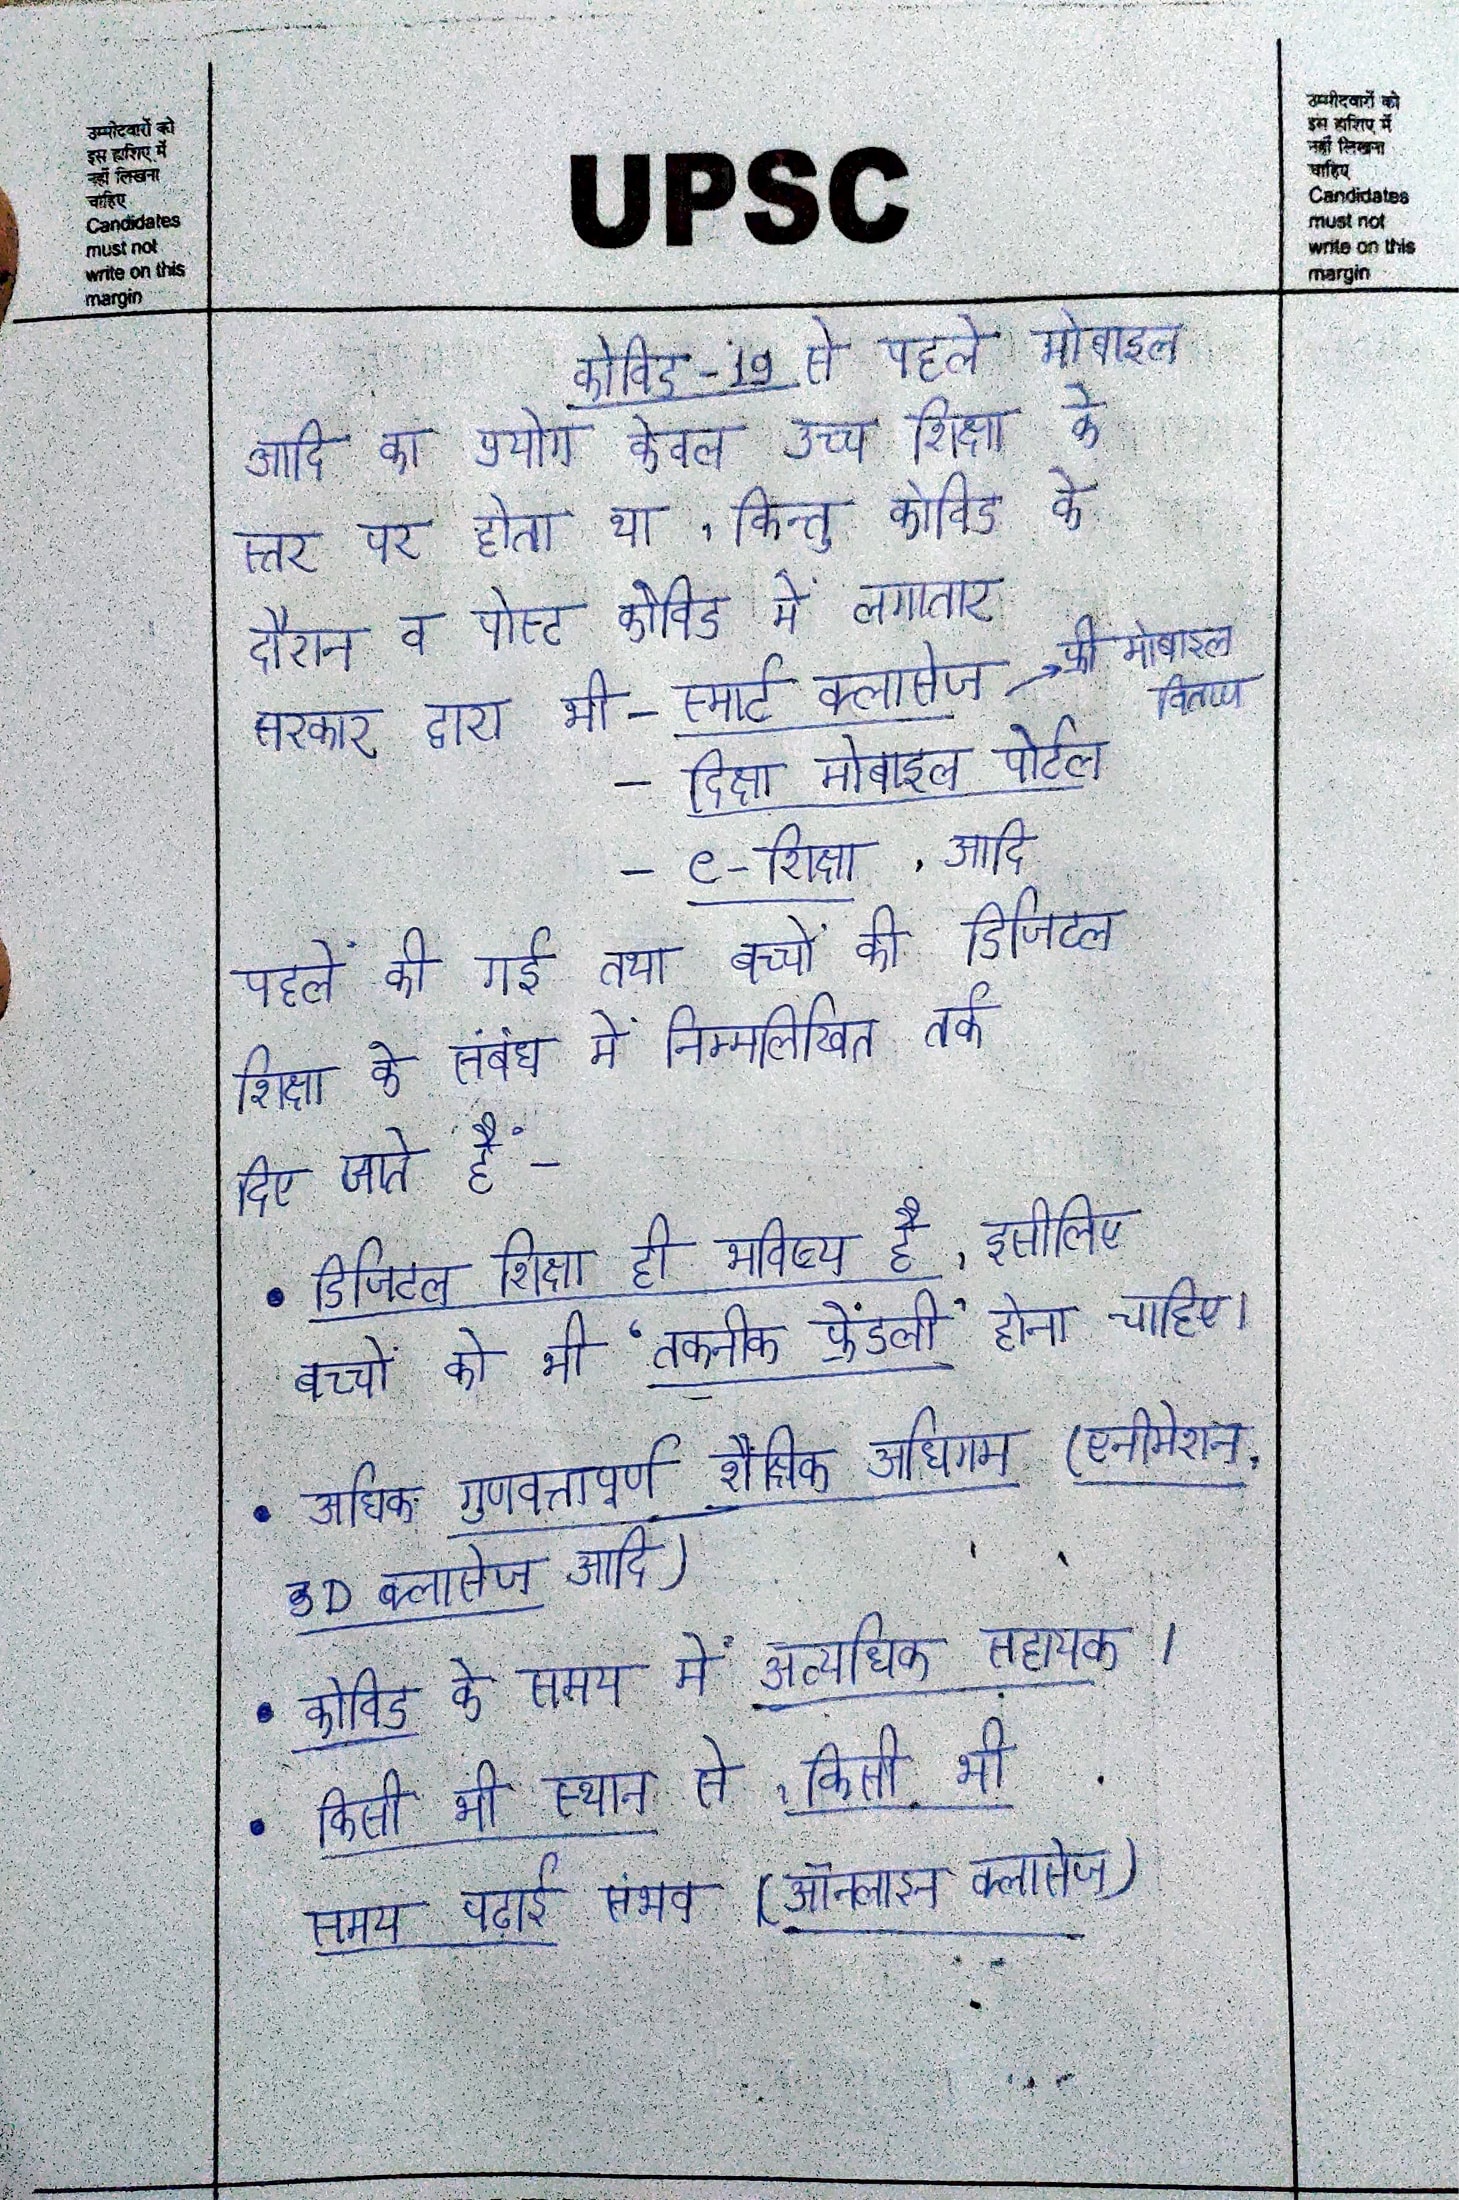 उम्मीदवारों को
इस हाशिए में
नहीं लिखना
चाहिए
Candidates
must not
write on this
margin
UPSC
उम्मीदवारों को
इस हाशिए में
नहीं लिखना
चाहिए
Candidates
must not
write on this
margin
कोविड-19 से पहले मोबाइल
आदि का प्रयोग केवल उच्च शिक्षा के
स्तर पर होता था, किन्तु कोविड के
दौरान व पोस्ट कोविड में लगातार
सरकार द्वारा भी - स्मार्ट क्लासेज → फ्री मोबाइल
वितरण
- दिक्षा मोबाइल पोर्टल
- e-शिक्षा, आदि
पहलें की गई तथा बच्चों की डिजिटल
शिक्षा के संबंध में निम्मलिखित तर्क
दिए जाते हैं -
• डिजिटल शिक्षा ही भविष्य है, इसीलिए
बच्चों को भी ‘तकनीक फ्रेंडली’ होना चाहिए।
• अधिक गुणवत्तापूर्ण शैक्षिक अधिगम (एनीमेशन,
3D क्लासेज आदि)
• कोविड के समय में अत्यधिक सहायक।
• किसी भी स्थान से, किसी भी
समय पढ़ाई संभव (ऑनलाइन क्लासेज)